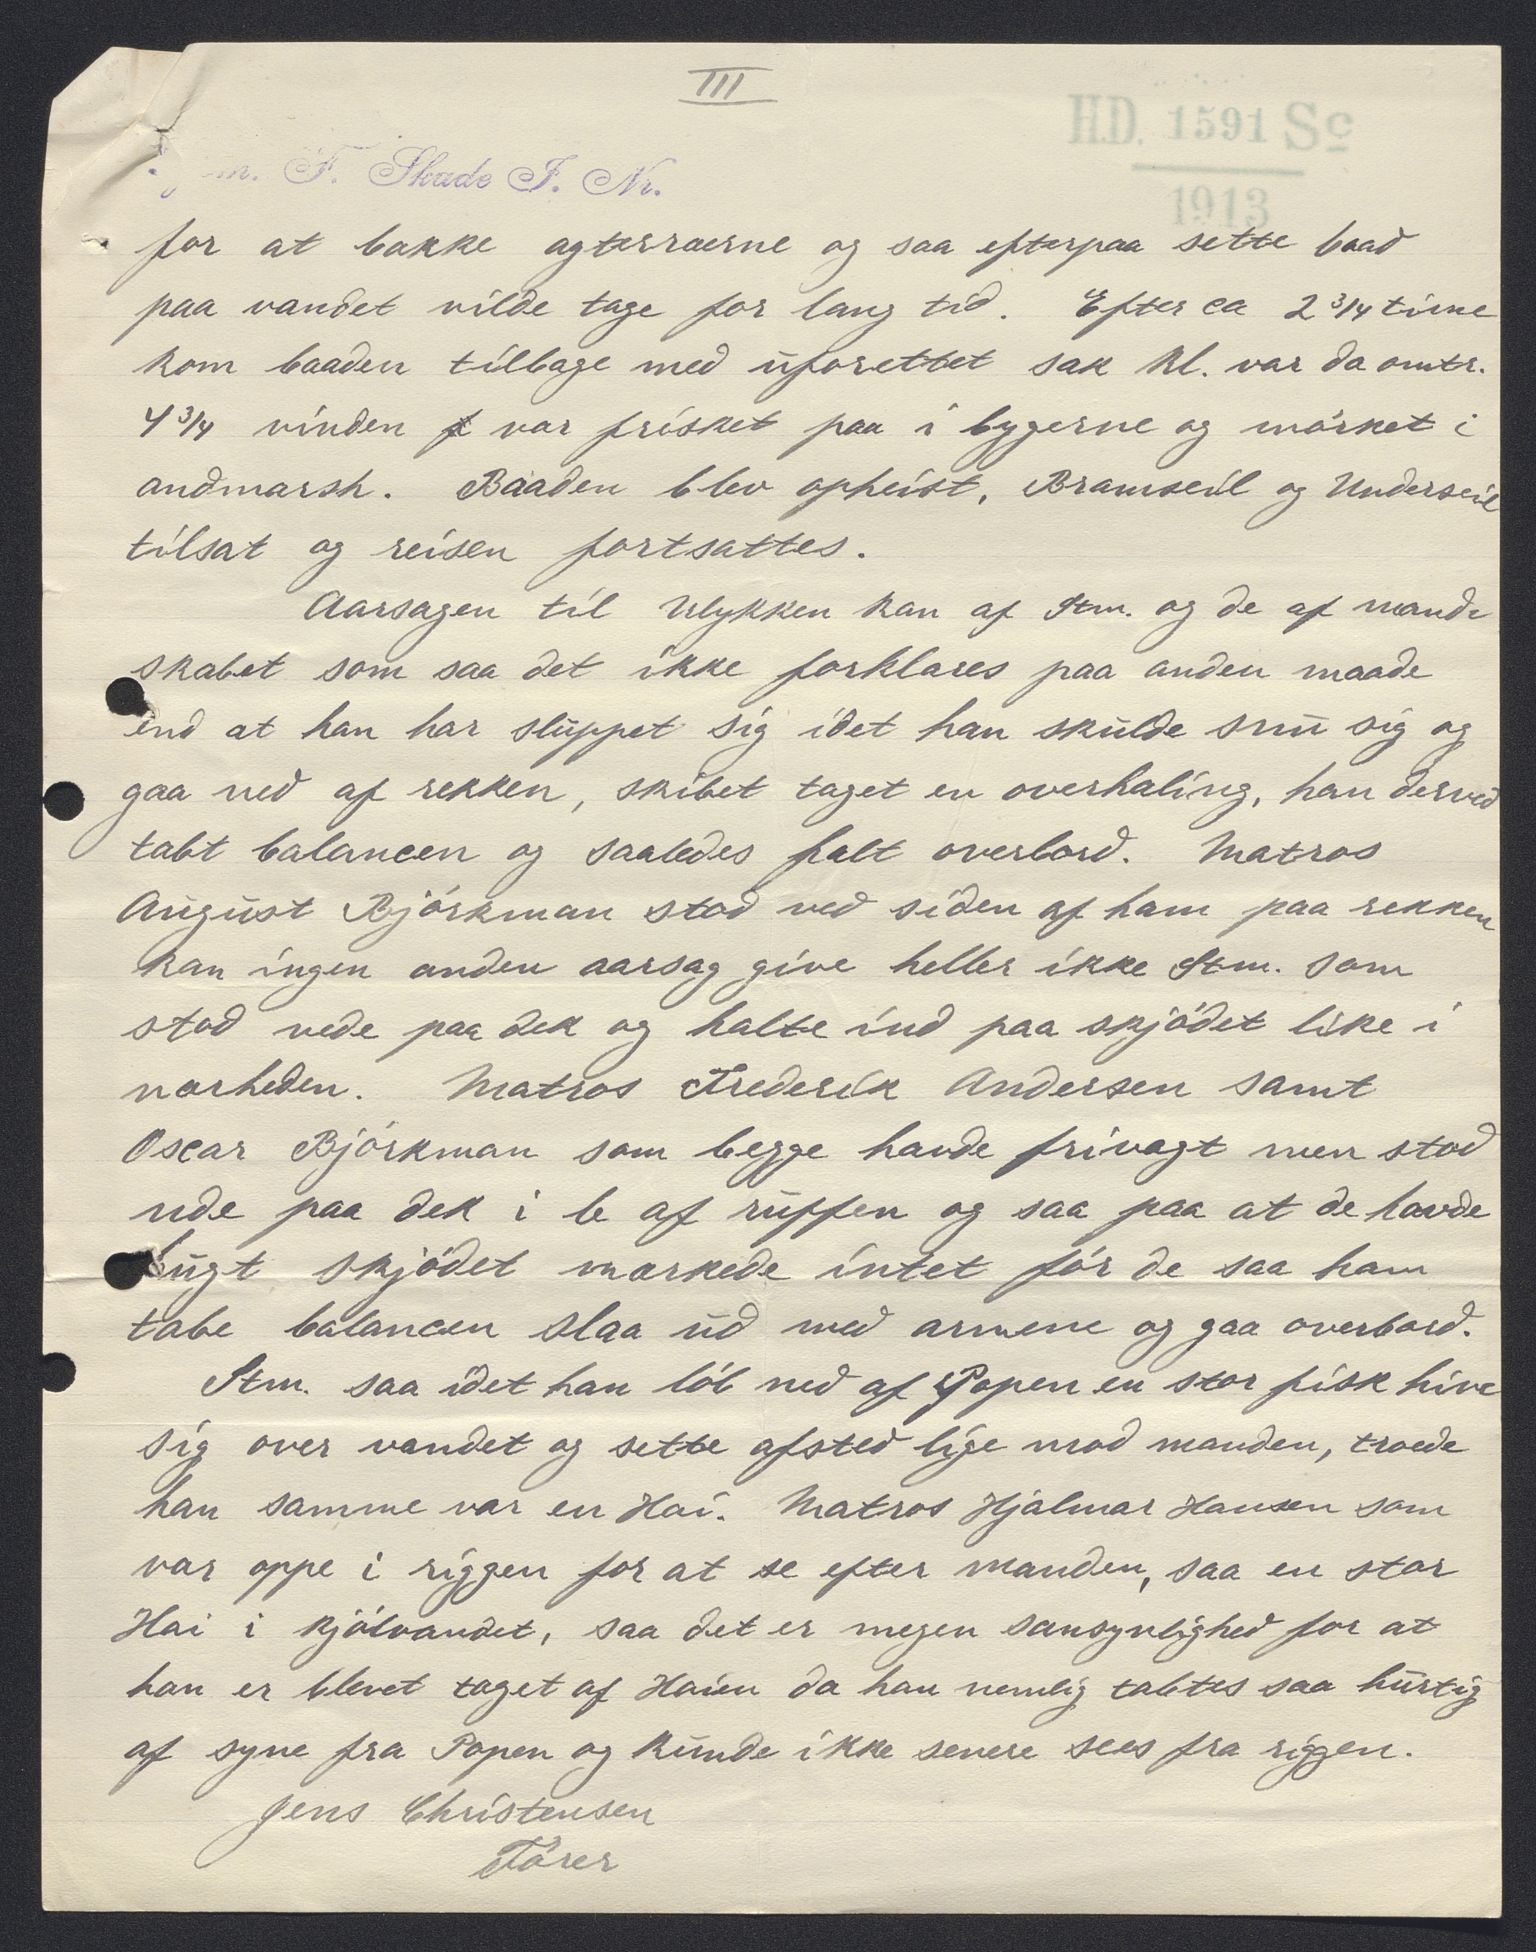 III
H.D. 1591 Sc
1913
F. Skade J. Nr.
for at bakke agterraerne og saa efterpaa sette baad
paa vandet vilde tage for lang tid. Efter ca 2 3/4 time
kom baaden tilbage med uforettet sak Kl. var da omtr.
4 3/4 vinden var frisket paa i bygerne og mörket i
andmarsh. Baaden blev opheist, Bramseil og Underseil
tilsat og reisen fortsattes.
Aarsagen til Ulykken kan af Stm. og de af mand-
skabet som saa det ikke forklares paa anden maade
end at han har sluppet sig idet han skulde snu sig og
gaa ned af rekken, skibet taget en overhaling, han derved
tabt balancen og saaledes falt overbord. Matros
August Björkman stod ved siden af ham paa rekken
kan ingen anden aarsag give heller ikke Stm. som
stod nede paa dek og halte ind paa skjödet like i
nærheden. Matros Frederik Andersen samt
Oscar Björkman som begge havde frivagt men stod
ude paa dek i le af ruffen og saa paa at de havde
bugt skjödet mærkede intet för de saa ham
tabe balancen slaa ud med armene og gaa overbord.
Stm. saa idet han löb ned af Popen en stor fisk hive
sig over vandet og sette afsted lige mod manden, troede
han samme var en Hai. Matros Hjalmar Hansen som
var oppe i riggen for at se efter manden, saa en stor
Hai i kjölvandet, saa det er megen sansynlighed for at
han er blevet taget af Haien da han nemlig tabtes saa hurtig
af syne fra Popen og kunde ikke senere sees fra riggen.
Jens Christensen
Förer